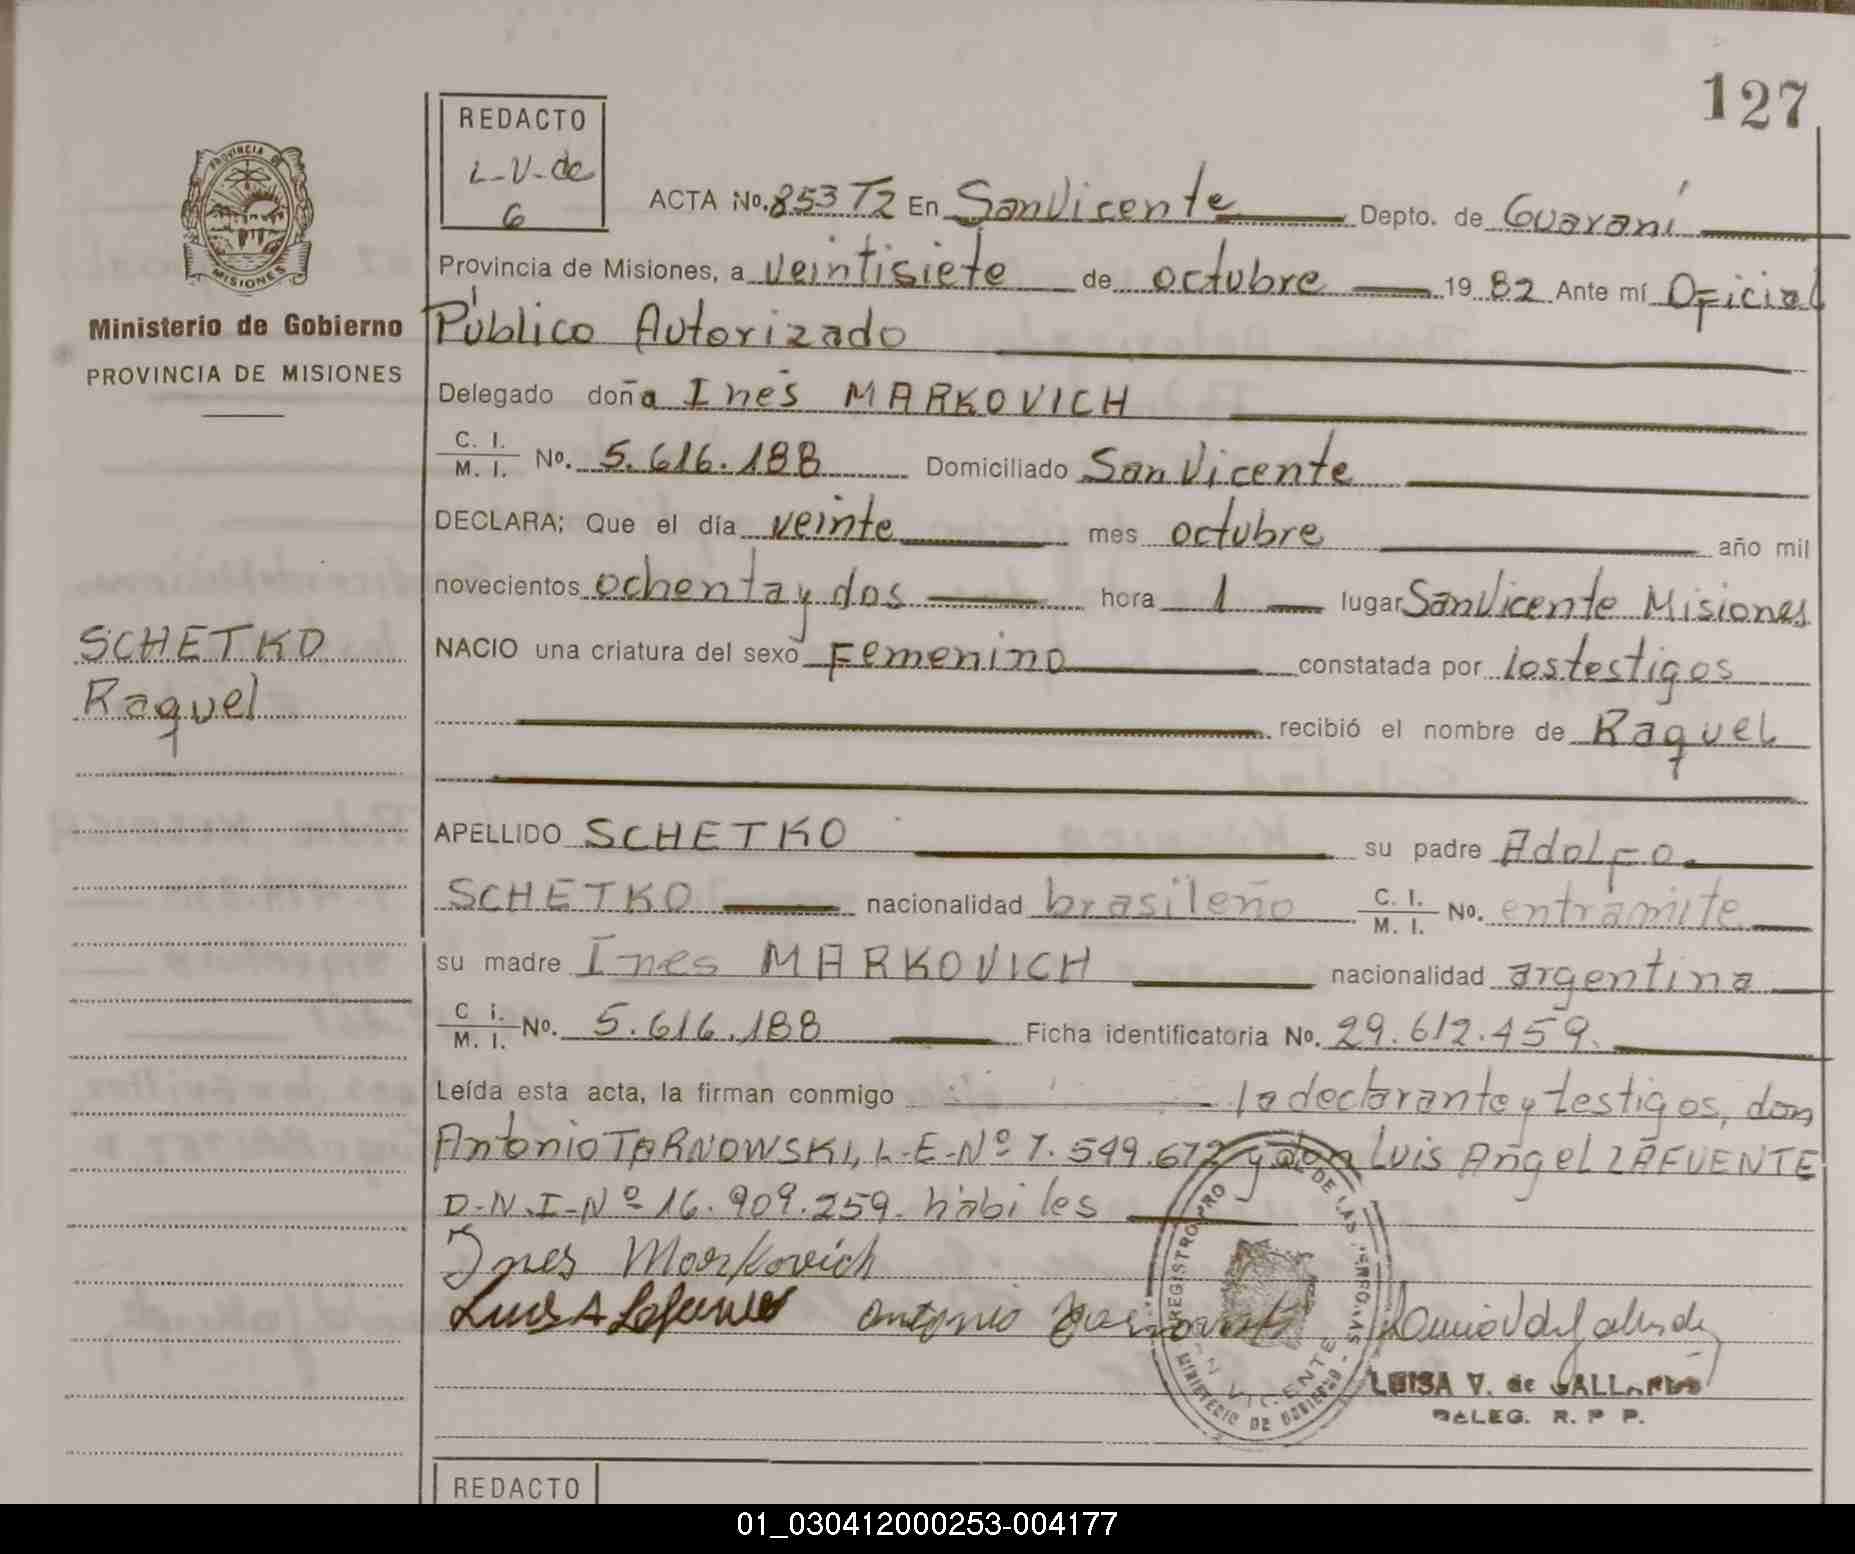 127
REDACTO
L-V-de
G
PROVINCIA DE
MISIONES
Ministerio de Gobierno
PROVINCIA DE MISIONES
SCHETKO
Raquel
ACTA No. 853 T2 En San Vicente Depto. de Guaraní
Provincia de Misiones, a veintisiete de octubre 19 82 Ante mí Oficial
Público Autorizado
Delegado doña Inés MARKOVICH
C. I. / M. I. No. 5.616.188 Domiciliado San Vicente
DECLARA: Que el día veinte mes octubre año mil
novecientos ochenta y dos hora 1 lugar San Vicente Misiones
NACIO una criatura del sexo Femenino constatada por los testigos
recibió el nombre de Raquel
APELLIDO SCHETKO su padre Adolfo
SCHETKO nacionalidad brasileño C. I. / M. I. No. en tramite
su madre Ines MARKOVICH nacionalidad argentina
C i. / M. I. No. 5.616.188 Ficha identificatoria No. 29.612.459.
Leída esta acta, la firman conmigo la declarante y testigos, don
Antonio TARNOWSKI, L-E-Nº 7.549.672 y don Luis Angel LAFUENTE
D-N-I-Nº 16.909.259. hábiles
Ines Markovich
Luis A Lafuente Antonio Tarnowski
REGISTRO PRO DE LAS PERSONAS
MINISTERIO DE GOBIERNO
VICENTE
LUISA V. de GALLARDO
DELEG. R. P P.
REDACTO
01_030412000253-004177